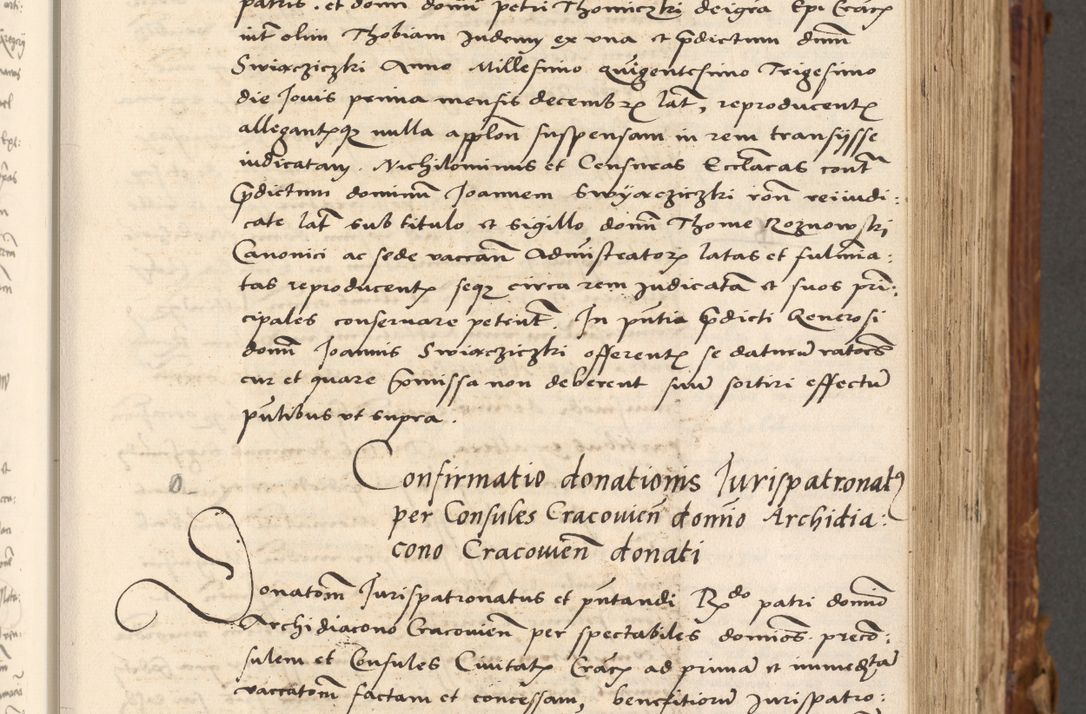 patris. et domi domi petri Thomiczki dei gra Epi Cracx
int olim Thobiam Judeum ex vna et pdictum dnum
Swiacziczki Anno Millesimo Quigentesimo Trigesimo
die Jouis prima mensis decembrx lat, reproducentx
allegantxqz nulla applon suspensam in rem transijsse
iudicatam. Nichilominus et Censuras Ecclacas cont
pdictum dominum Joannem Swyacziczki ron reiudi:
cate lat sub titulo et sigillo domi Thome Roznowski
Canonici ac sede vaccan Administratorx latas et fulmina:
tas reproducentx seqz circa rem Judicatam et suos prin:
cipales conseruare petint. In pntia pdicti Generosi
domi Joannis Swiacziczki offerentx se daturum rationes
cur et quare pmissa non deberent suum sortiri effectum
pntibus vt supra.
Confirmatio donationis Jurispatronatz
per Consules Cracouien domino Archidia:
cono Cracouien donati
Donatom Jurispatronatus et pntandi Rxdo patri domino
Archidiacono Cracouien per spectabiles dominos precon:
sulem et Consules Ciuitatx Cracx ad primam et immediatam
vaccatom factam et concessam, beneficiorum Jurispatro: